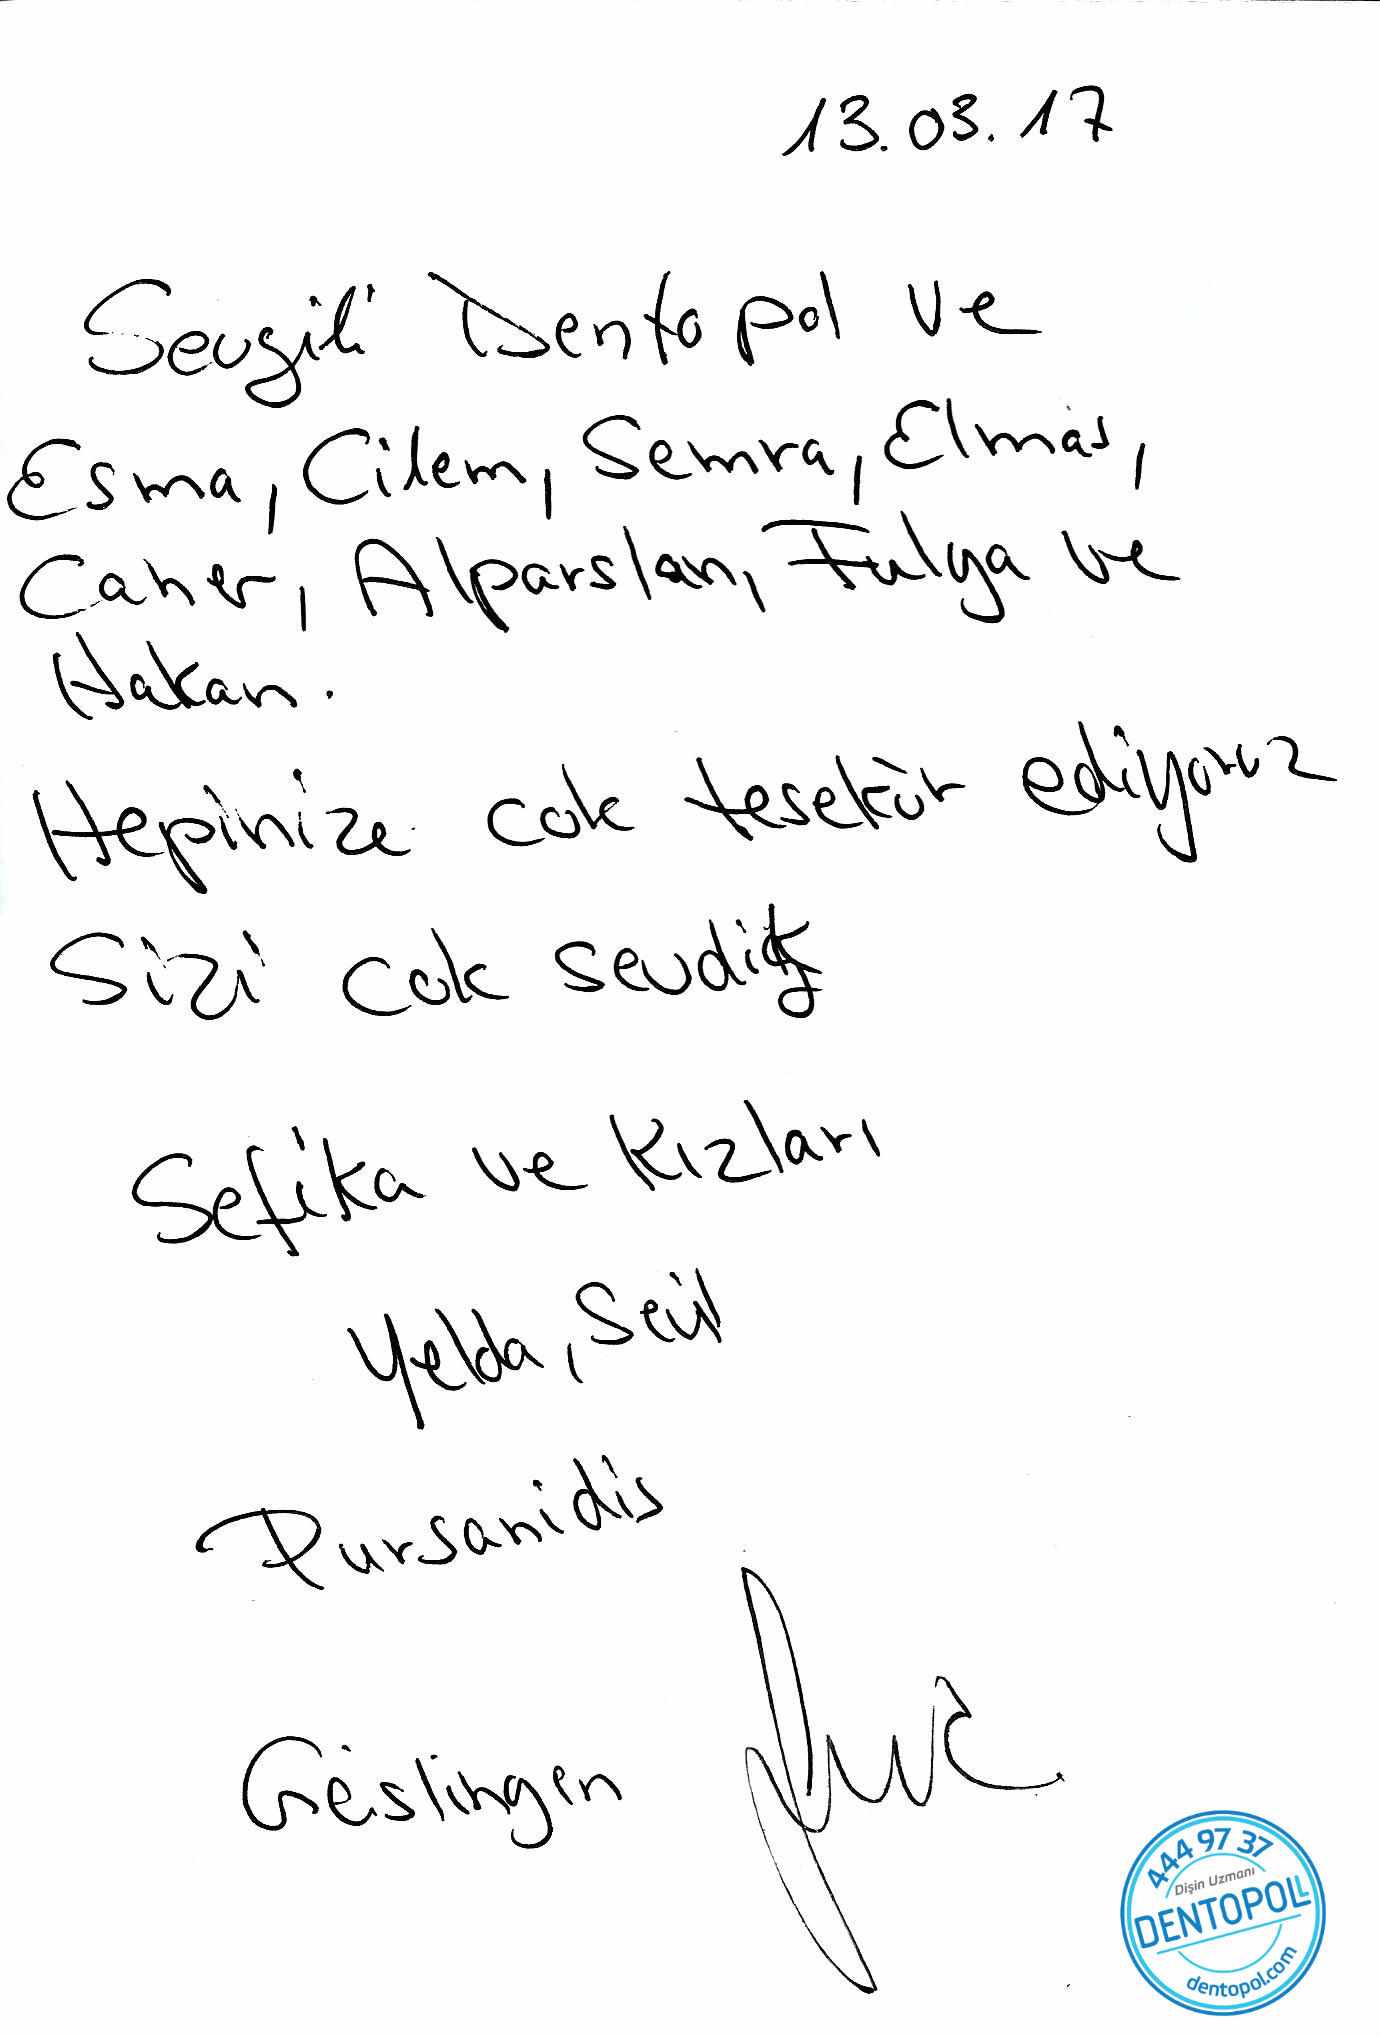 13.03.17
Sevgili Dentopol ve
Esma, Cilem, Semra, Elmas,
Caner, Alparslan, Fulya ve
Hakan.
Hepinize cok tesekür ediyoruz
Sizi cok sevdik
Sefika ve Kızları
Yelda,
Pursanidis
Geislingen
444 97 37
Dişin Uzmanı
DENTOPOL
dentopol.com